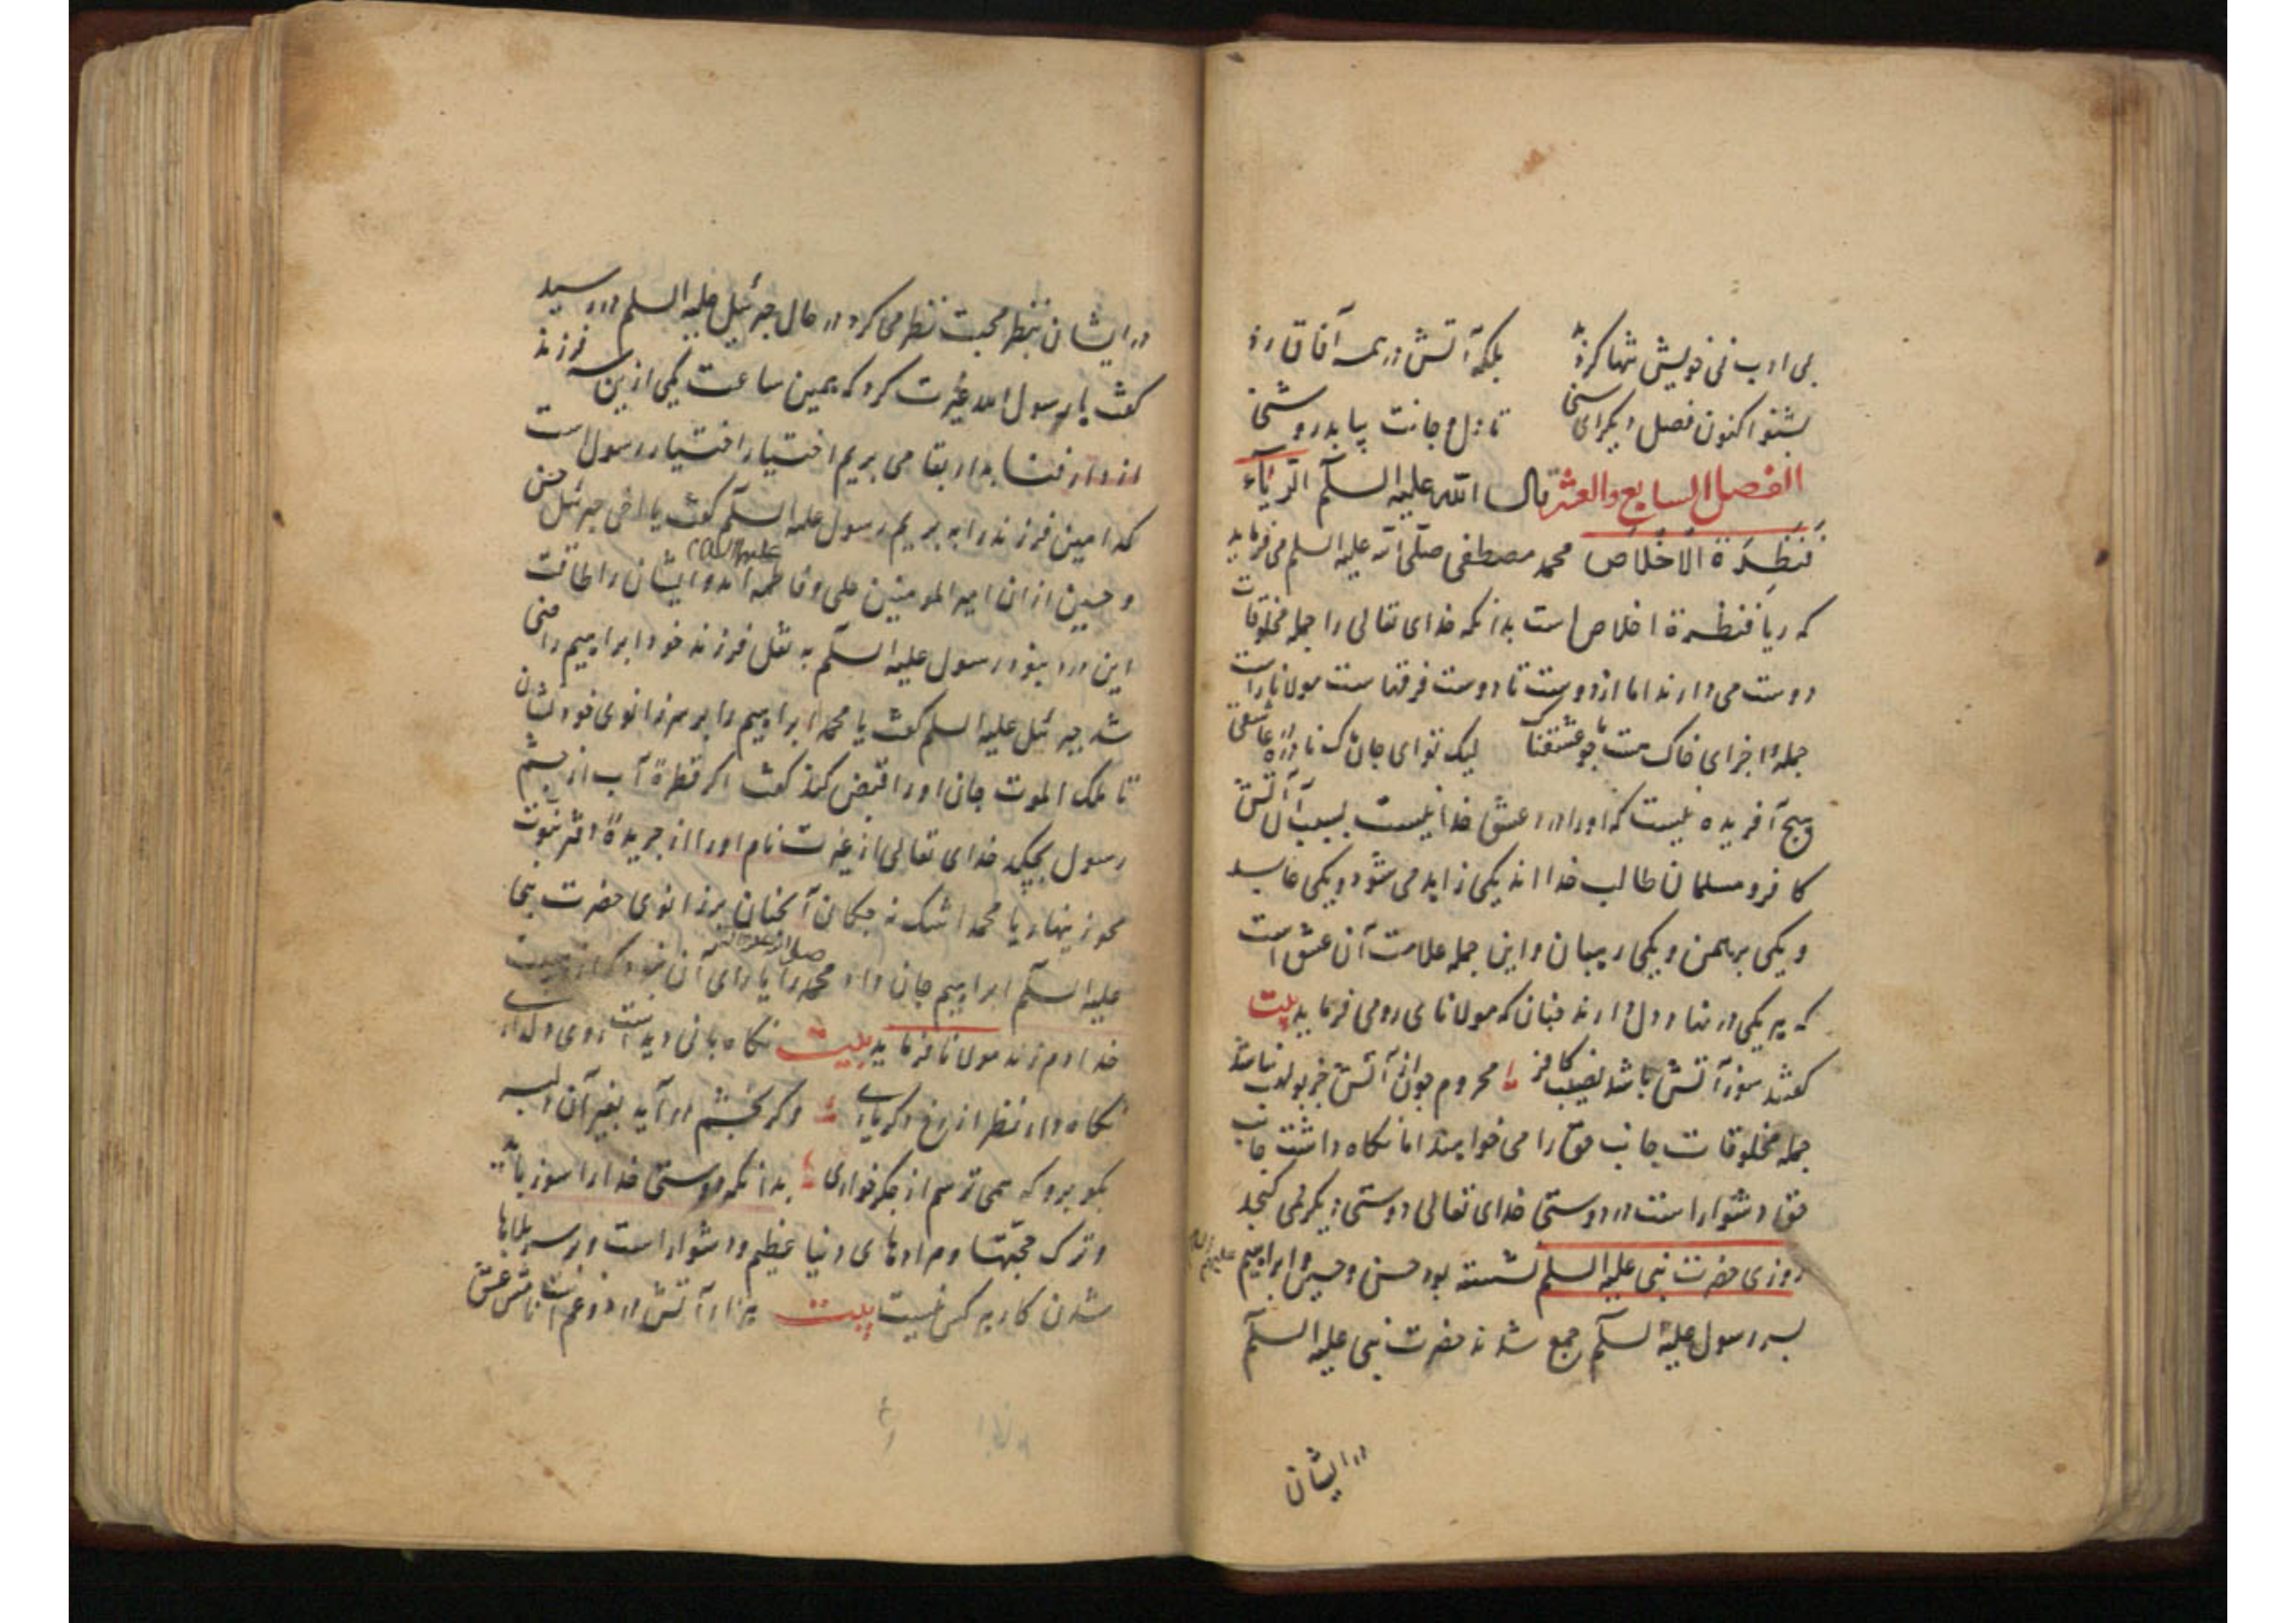 بی ادب نی خویش تنها کرد بد بلکه آتش در همه آفاق زد
بشنو اکنون فصل دیگر ای سنی تا دل و جانت بیابد روشنی
الفصل السابع والعشر قال النبی علیه السلم الریآء
قنطرة الاخلاص محمد مصطفی صلی الله علیه السلم می فرماید
که ریا قنطرة اخلاص است بدانکه خدای تعالی را جمله مخلوقات
دوست می دارند اما از دوست تا دوست فرقهاست مولانا راست
جمله اجزای خاک هست چو ما عشقناک لیک تو ای جان پاک نادره عاشقی
هیچ آفریده نیست که او را درد عشق خدا نیست بسبب آن آتش
کافر و مسلمان طالب خدا اند یکی زاهد می شود و یکی عابد
و یکی برهمن و یکی رهبان و این جمله علامت آن عشق است
که هر یکی در نهاد دل دارند چنان که مولانای رومی فرماید بیت
گفتند سوز آتش باشد نصیب کافر محروم جز از آتش جز بولهب نباشد
جمله مخلوقات جانب حق را می خواهند اما نگاه داشتن جانب
حق دشوار است در دوستی خدای تعالی دوستی دیگر نمی گنجد
روزی حضرت نبی علیه السلم نشسته بود حسن و حسین و ابراهیم
پسر رسول علیه السلم جمع شدند حضرت نبی علیه السلم
در ایشان
در ایشان بنظر محبت نظر می کرد در حال جبرئیل علیه السلم در رسید
گفت یا رسول الله غیرت کرد که همین ساعت یکی ازین سه فرزند
از دار فنا بدار بقا می بریم اختیار اختیار رسول است
کدامین فرزند را ببریم رسول علیه السلم گفت یا اخی جبرئیل حسن
و حسین از ان امیر المومنین علی و فاطمه اند و ایشان را طاقت
این درد نبود رسول علیه السلم به نقل فرزند خود ابراهیم راضی
شد جبرئیل علیه السلم گفت یا محمد ابراهیم را بر سر زانوی خود نشان
تا ملک الموت جان او را قبض کند گفت اگر قطرة آب از چشم
رسول بچکد خدای تعالی از غیرت نام او را از جریدة دفتر نبوت
محو زینهار یا محمد اشک نه چکان آنچنان بر زانوی حضرت نبی
علیه السلم ابراهیم جان داد محمد را یارای آن نبود که از هیبت
خدا دم زند مولانا فرماید بیت نگاه بانی دیدست روی دلدار
نگاه دار نظر از رخ دگر یاری وگر بچشم در آید بغیر آن دلبر
بگو برو که همی ترسم از جگر خواری بدانکه دوستی خدا را سوز باید
و ترک محبتها و مرادهای دنیا عظیم دشوار است و بر سر بلاها
شدن کار هر کس نیست بیت هزار آتش و دود و غم است نامش عشق